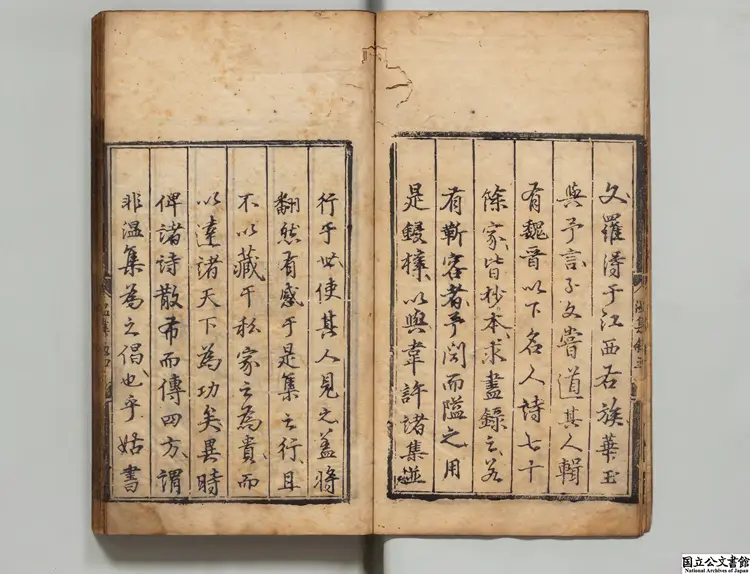 文羅得于江西右族華玉
與予言子文嘗道其人輯
有魏晉以下名人詩七十
餘家皆抄本求盡録之若
有靳容者予閔而隘之用
是鋟榟以與韋許諸集並
行于世使其人見之蓋將
翻然有感于是集之行且
不以藏于私家之為貴而
以達諸天下為功矣異時
俾諸詩散布而傳四方謂
非温集為之倡也乎姑書
国立公文書館
National Archives of Japan